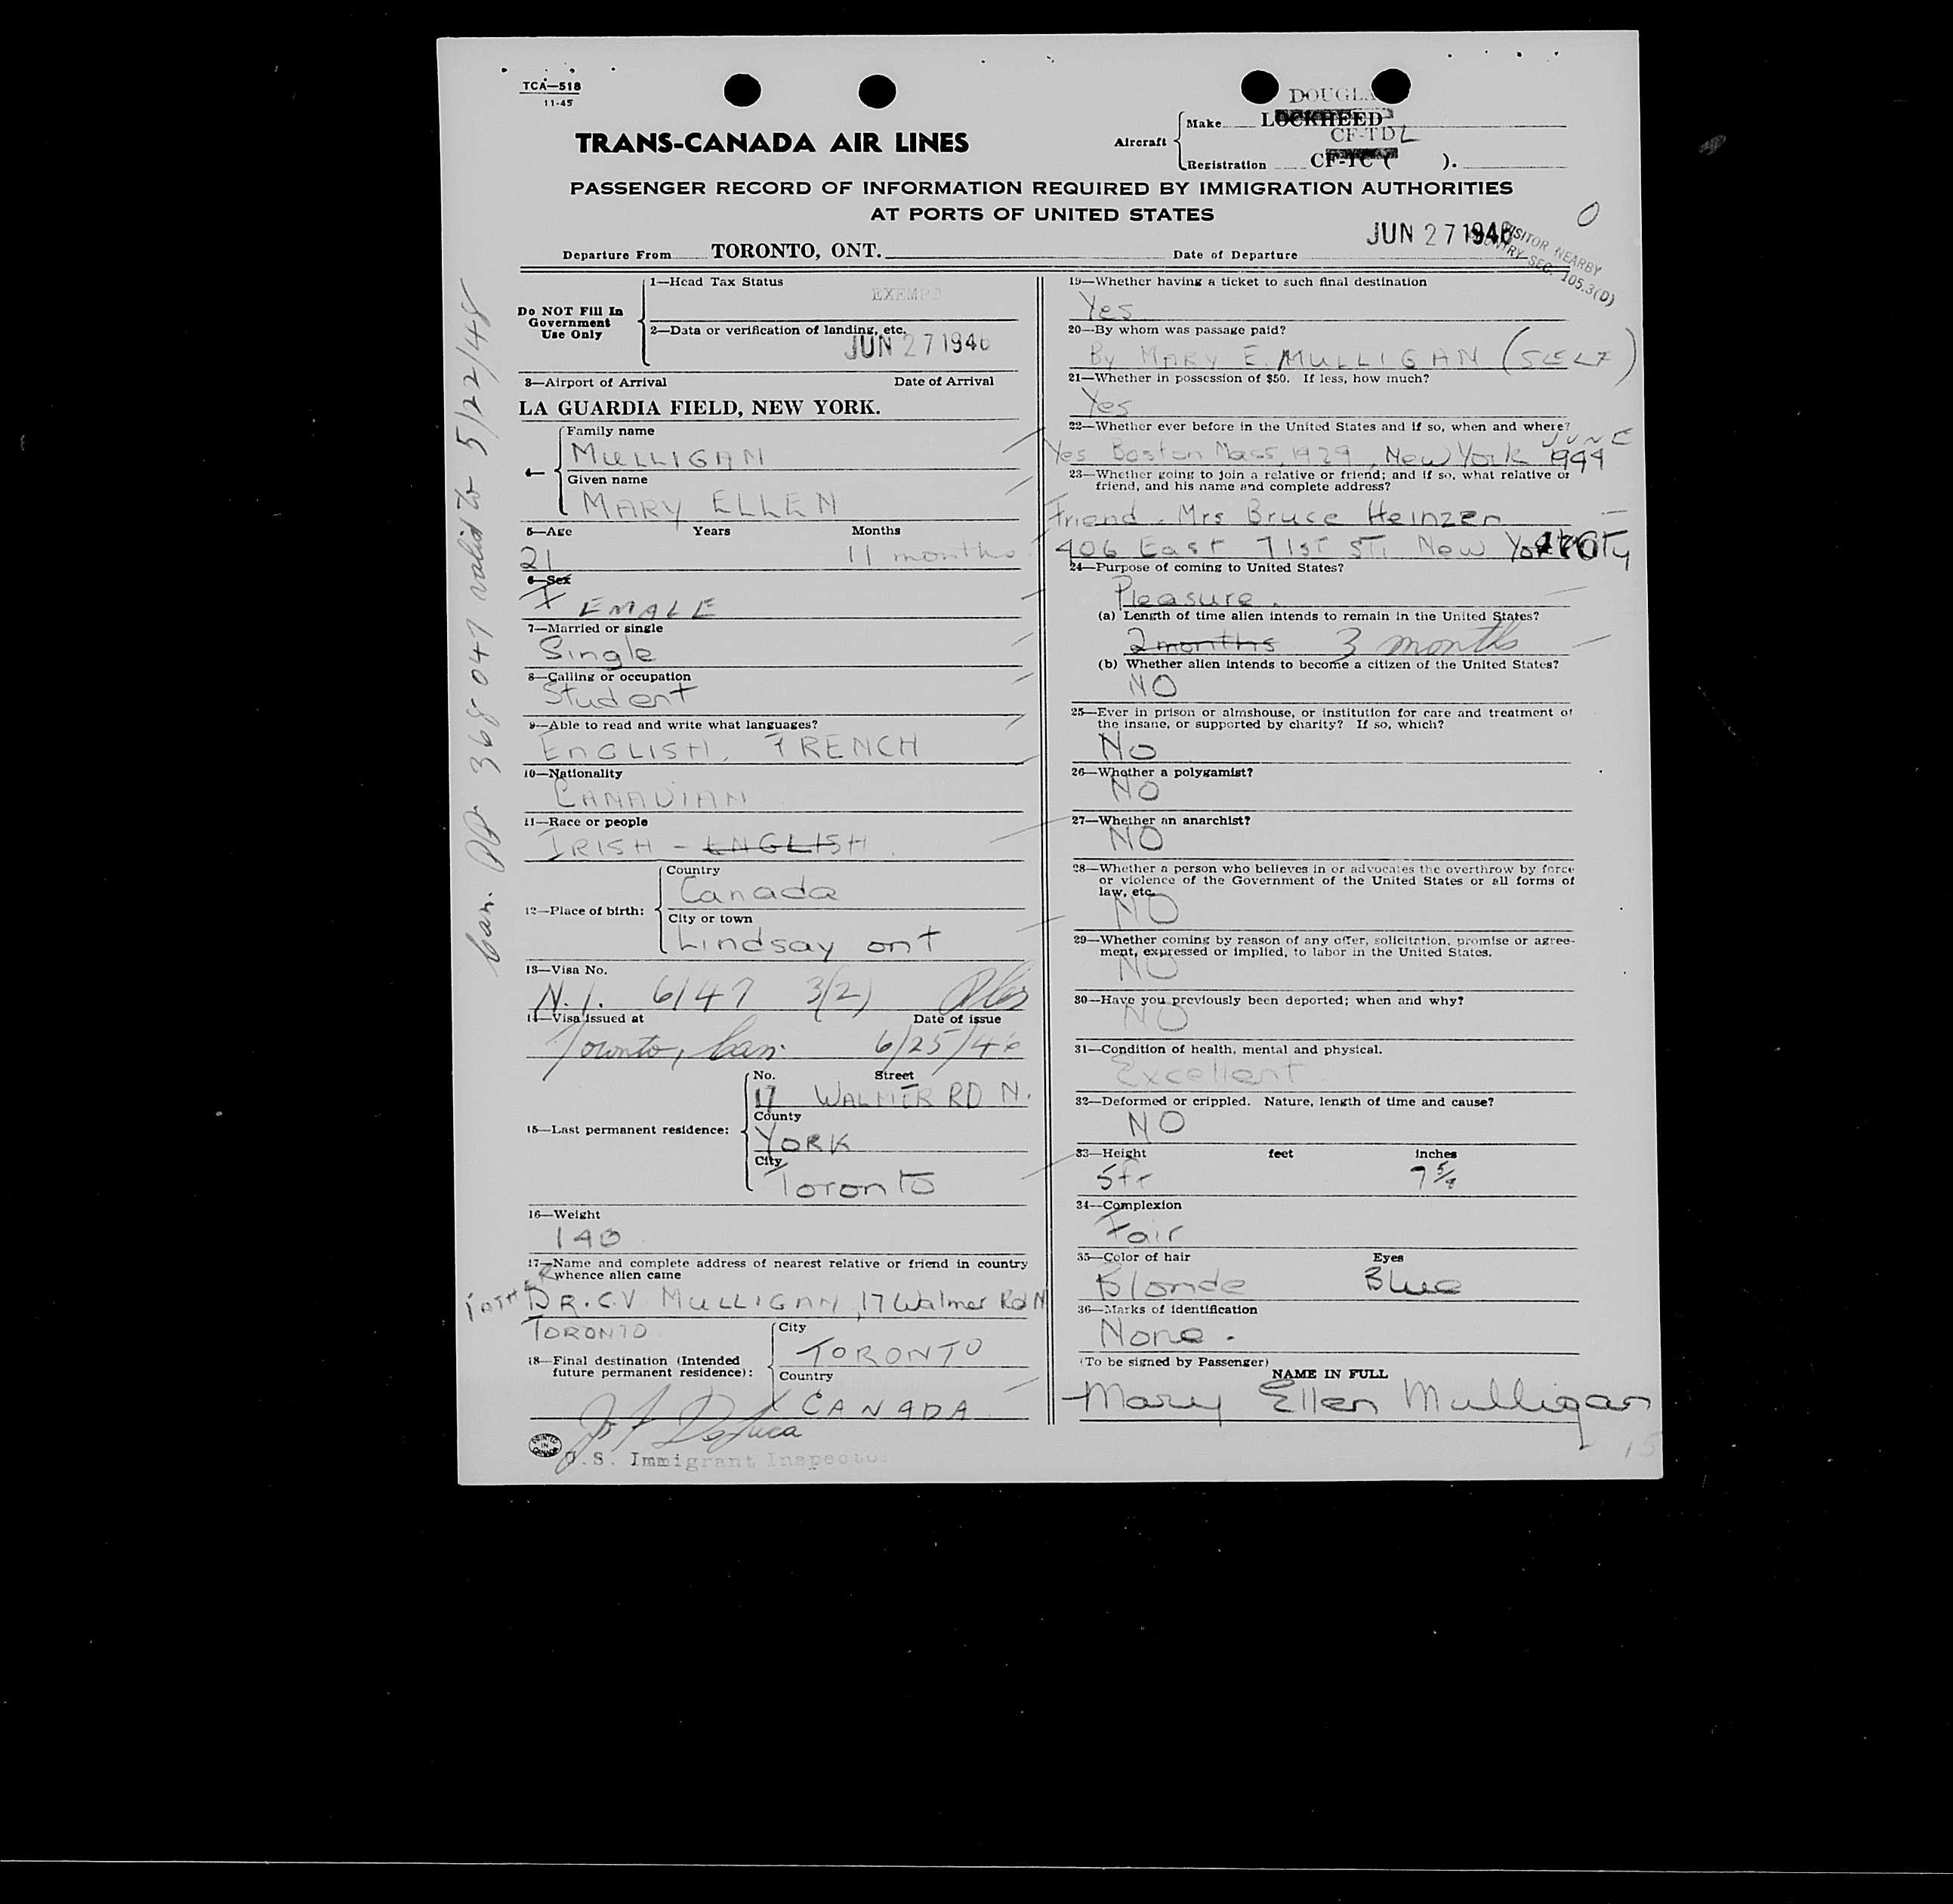 TCA—518
11-45
DOUGLA
Make LOCKHEED
CF-TDL
Aircraft
Registration CF-TC ( ).
TRANS-CANADA AIR LINES
PASSENGER RECORD OF INFORMATION REQUIRED BY IMMIGRATION AUTHORITIES
AT PORTS OF UNITED STATES
Departure From TORONTO, ONT. Date of Departure JUN 27 1946
VISITOR NEARBY
COUNTRY SEC. 105.3(D)
Can. PP. 368047 valid to 5/22/48
Do NOT Fill In
Government
Use Only
1—Head Tax Status
EXEMPT
2—Data or verification of landing, etc.
JUN 27 1946
3—Airport of Arrival Date of Arrival
LA GUARDIA FIELD, NEW YORK.
4—
Family name
MULLIGAN
Given name
MARY ELLEN
5—Age Years Months
21 11 months
6—Sex
FEMALE
7—Married or single
Single
8—Calling or occupation
Student
9—Able to read and write what languages?
ENGLISH, FRENCH
10—Nationality
CANADIAN
11—Race or people
IRISH - ENGLISH
12—Place of birth:
Country
Canada
City or town
Lindsay ont
13—Visa No.
N.I. 6147 3(2)
14—Visa issued at Date of issue
Toronto, Can. 6/25/46
15—Last permanent residence:
No. Street
17 WALMER RD N.
County
YORK
City
Toronto
16—Weight
140
17—Name and complete address of nearest relative or friend in country
whence alien came
FATHER DR. C.V MULLIGAN, 17 Walmer Rd N
TORONTO
18—Final destination (Intended
future permanent residence):
City
TORONTO
Country
CANADA
U.S. Immigrant Inspector
PRINTED
IN
CANADA
19—Whether having a ticket to such final destination
Yes
20—By whom was passage paid?
By MARY E. MULLIGAN (SELF)
21—Whether in possession of $50. If less, how much?
Yes
22—Whether ever before in the United States and if so, when and where?
JUNE
Yes Boston Mass, 1929, New York 1944
23—Whether going to join a relative or friend; and if so, what relative or
friend, and his name and complete address?
Friend - Mrs Bruce Heinzen
406 East 71st ST. New York City
24—Purpose of coming to United States?
Pleasure.
(a) Length of time alien intends to remain in the United States?
2 months 3 months
(b) Whether alien intends to become a citizen of the United States?
NO
25—Ever in prison or almshouse, or institution for care and treatment of
the insane, or supported by charity? If so, which?
No
26—Whether a polygamist?
NO
27—Whether an anarchist?
NO
28—Whether a person who believes in or advocates the overthrow by force
or violence of the Government of the United States or all forms of
law, etc.
NO
29—Whether coming by reason of any offer, solicitation, promise or agree-
ment, expressed or implied, to labor in the United States.
NO
30—Have you previously been deported; when and why?
NO
31—Condition of health, mental and physical.
Excellent
32—Deformed or crippled. Nature, length of time and cause?
NO
33—Height feet inches
5ft 7
34—Complexion
Fair
35—Color of hair Eyes
Blonde Blue
36—Marks of identification
None.
(To be signed by Passenger)
NAME IN FULL
Mary Ellen Mulligan